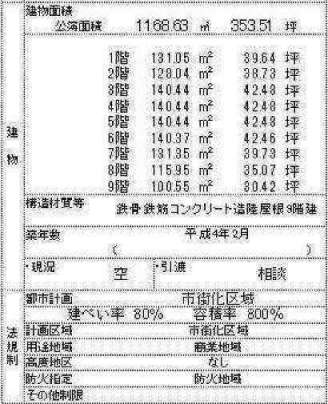 建物
建物面積
公簿面積 1168.63 ㎡ 353.51 坪
1階 131.05 m² 39.64 坪
2階 128.04 m² 38.73 坪
3階 140.44 m² 42.48 坪
4階 140.44 m² 42.48 坪
5階 140.44 m² 42.48 坪
6階 140.37 m² 42.46 坪
7階 131.35 m² 39.73 坪
8階 115.95 m² 35.07 坪
9階 100.55 m² 30.42 坪
構造材質等 鉄骨鉄筋コンクリート造陸屋根9階建
築年数 平成4年2月
( )
・現況 空 ・引渡 相談
法規制
都市計画 市街化区域
建ぺい率 80% 容積率 800%
計画区域 市街化区域
用途地域 商業地域
高度地区 なし
防火指定 防火地域
その他制限